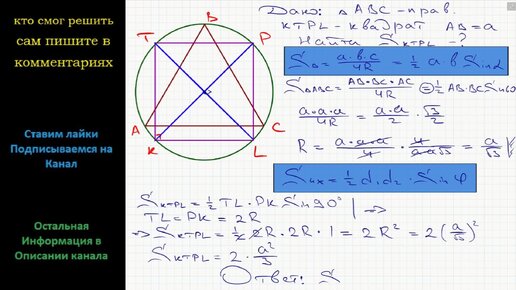 кто смог решить
сам пишите в
комментариях
Ставим лайки
Подписываемся на
Канал
Остальная
Информация в
Описании канала
B
T
P
A
C
K
L
Дано: △ABC - прав.
KTPL - квадрат AB = a
Найти S_KTPL - ?
S_△ = a·b·c / 4R = 1/2 a·b Sin α
S_△ABC = AB·BC·AC / 4R = 1/2 AB·BC Sin 60
a·a·a / 4R = a·a / 2 · √3 / 2
S_4x = 1/2 d₁ d₂ · Sin φ
S_KTPL = 1/2 TL · PK Sin 90°
TL = PK = 2R
⇒ S_KTPL = 1/2 · 2R · 2R · 1 = 2R² = 2 (a/√3)²
S_KTPL = 2 · a² / 3
Ответ: S